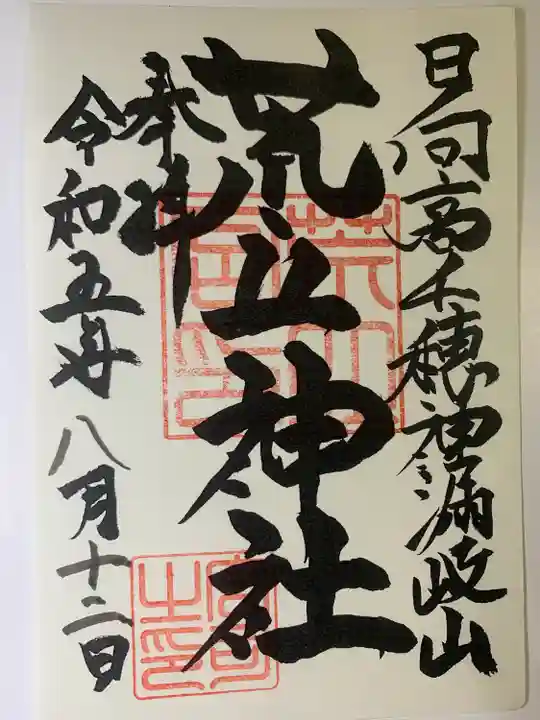 日向高千穂神漏岐山
荒立神社
奉拝
令和五年 八月十二日